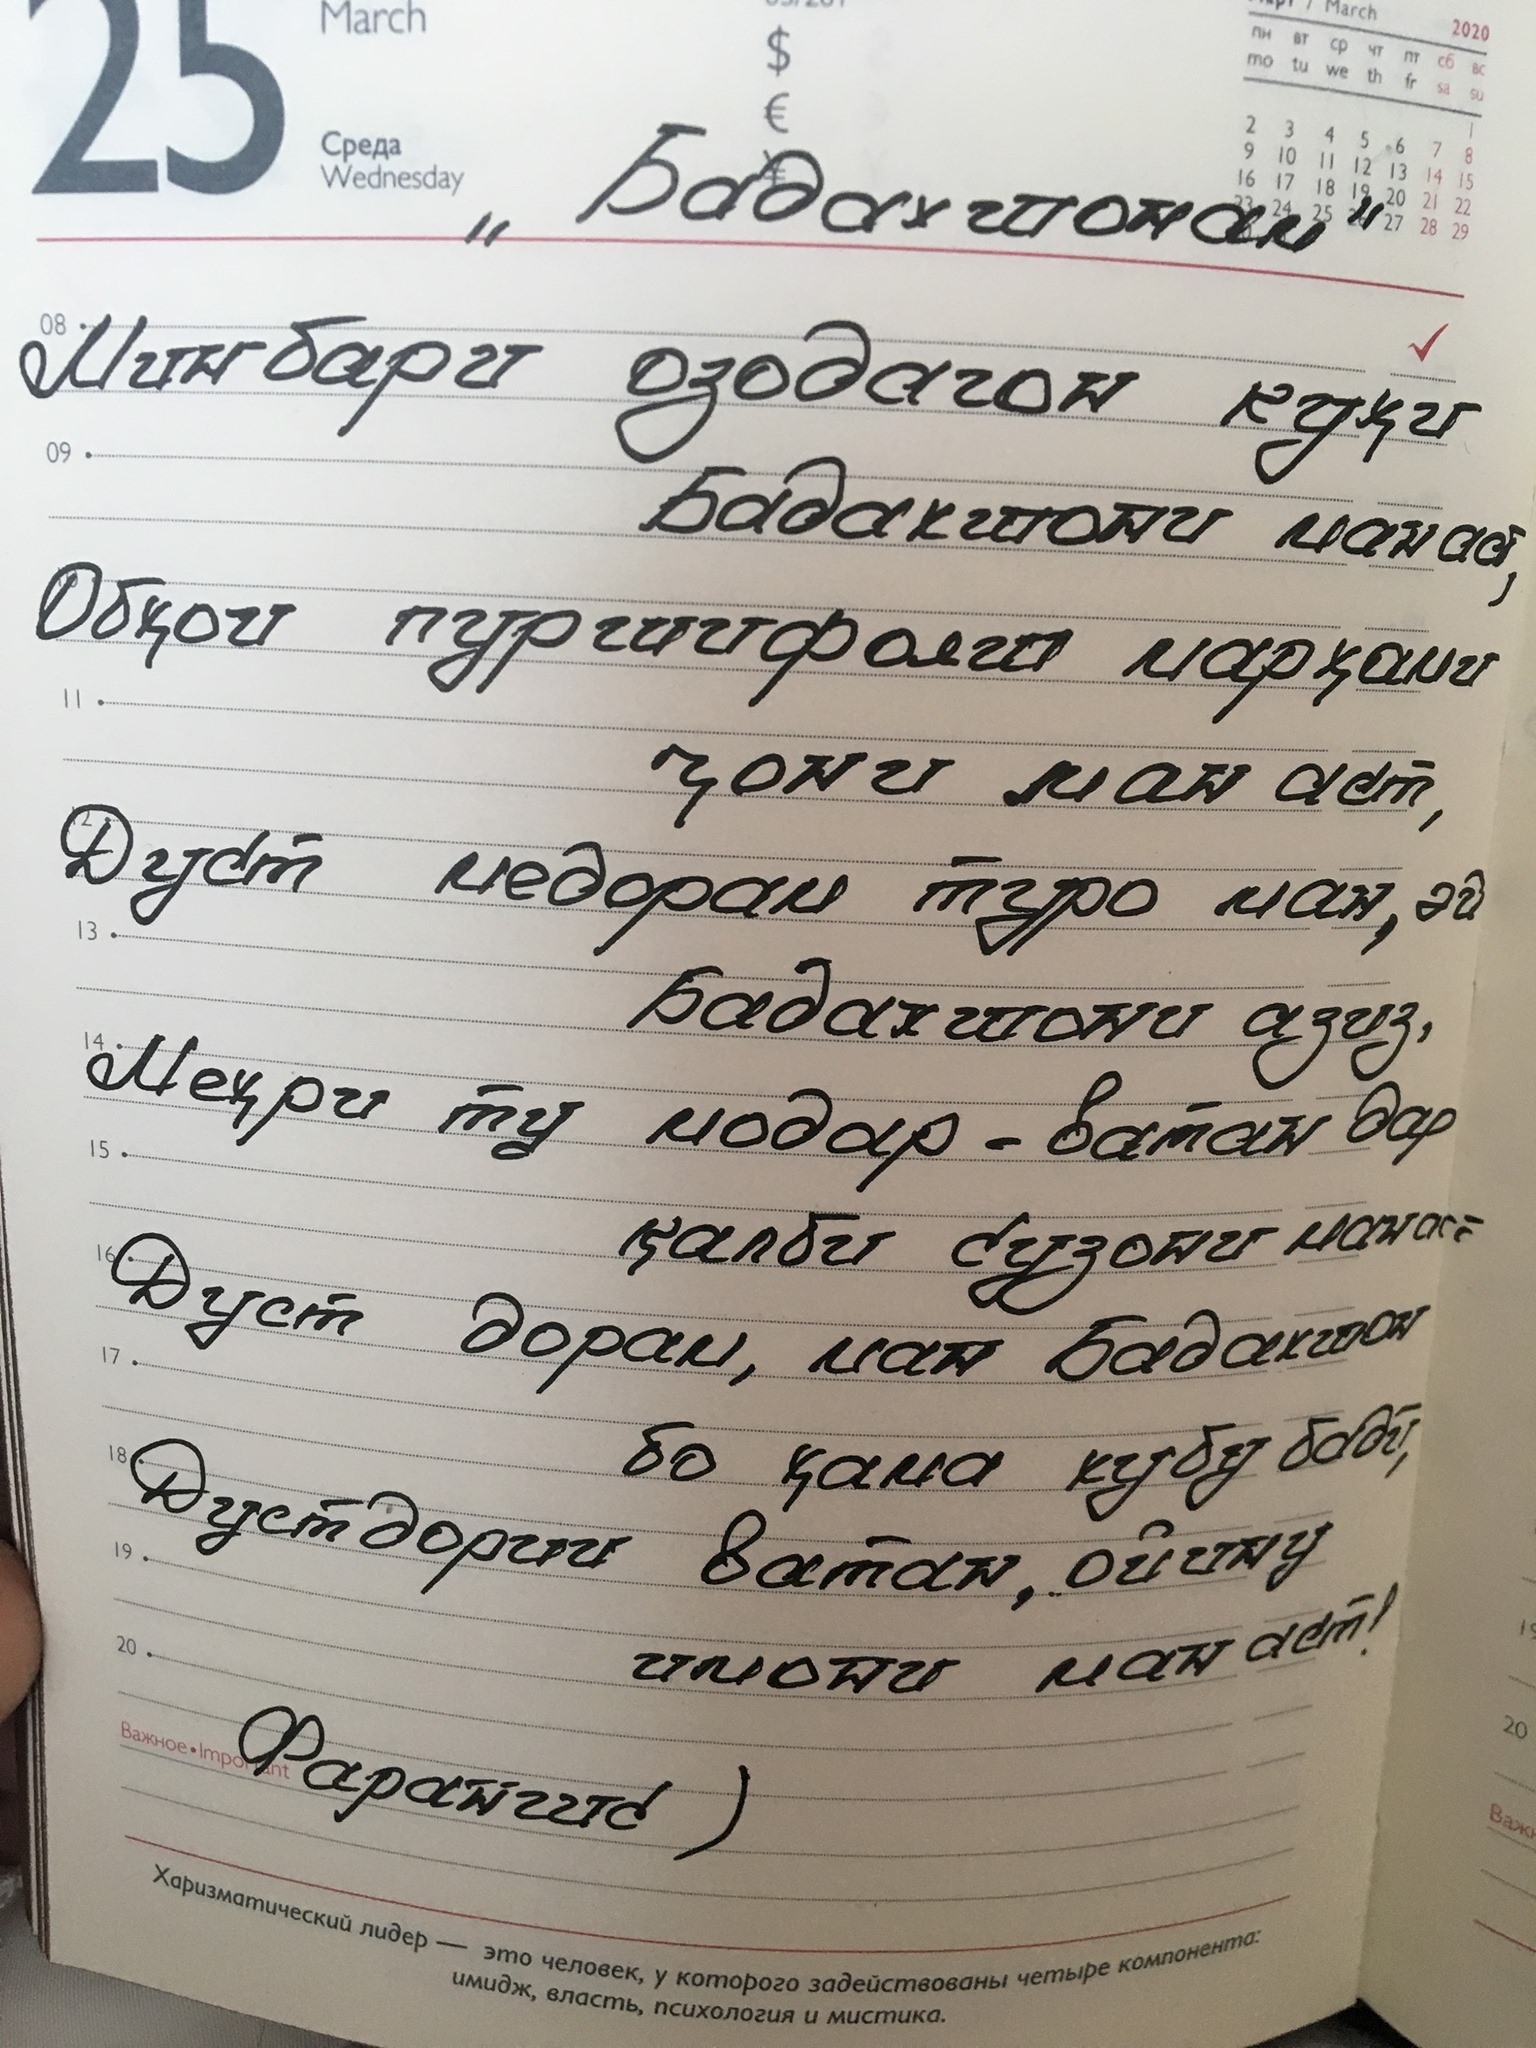 25 March
$
€
¥
Среда
Wednesday
Март / March 2020
пн вт ср чт пт сб вс
mo tu we th fr sa su
1
2 3 4 5 6 7 8
9 10 11 12 13 14 15
16 17 18 19 20 21 22
23 24 25 26 27 28 29
„Бадахшонам"
08 Минбари озодагон кӯҳи
09
Бадахшони манаст,
Обҳои пуршифояш марҳами
11
ҷони ман аст,
12 Дуст медорам туро ман, эй
13
Бадахшони азиз,
14 Меҳри ту модар-ватан дар
15
қалби сузони манаст
16 Дуст дорам, ман Бадахшон
17
бо ҳама хубу бадӣ,
18 Дустдории ватан, ойину
19
имони ман аст!
20
Важное•Important
Фарангис)
Харизматический лидер — это человек, у которого задействованы четыре компонента:
имидж, власть, психология и мистика.
19
20